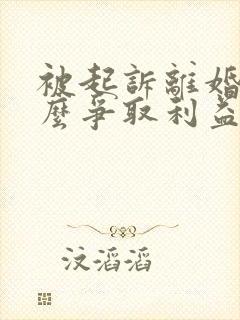 被起訴離婚
麼爭取利益
汶滔滔